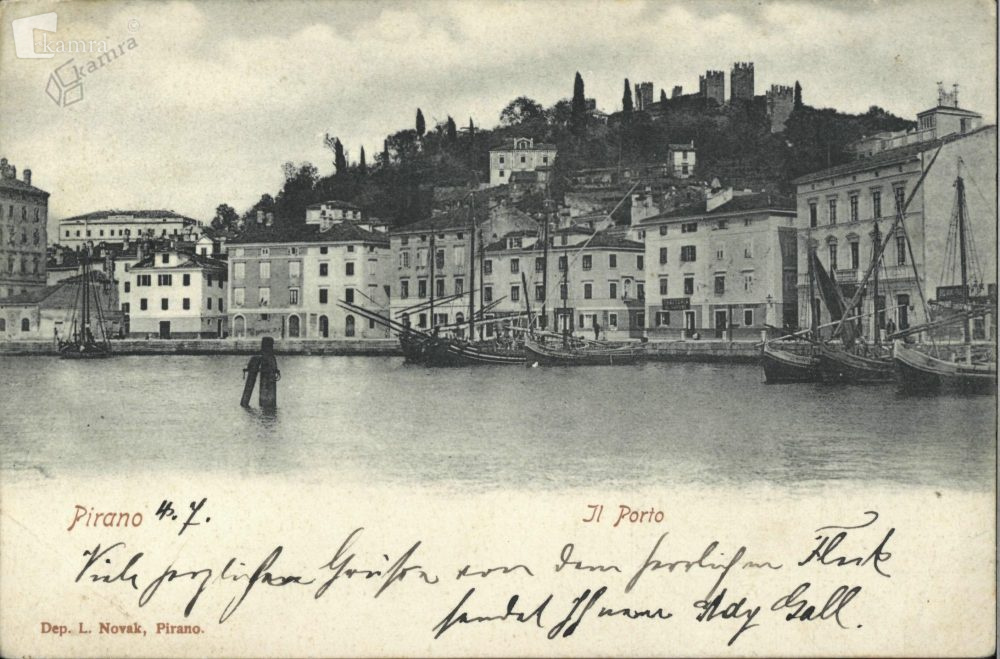 kamra
kamra
Pirano 4. 7.
Il Porto
Viele herzlichen Grüsse von dem herrlichen Fleck
sendet Ihnen Ady Gall.
Dep. L. Novak, Pirano.